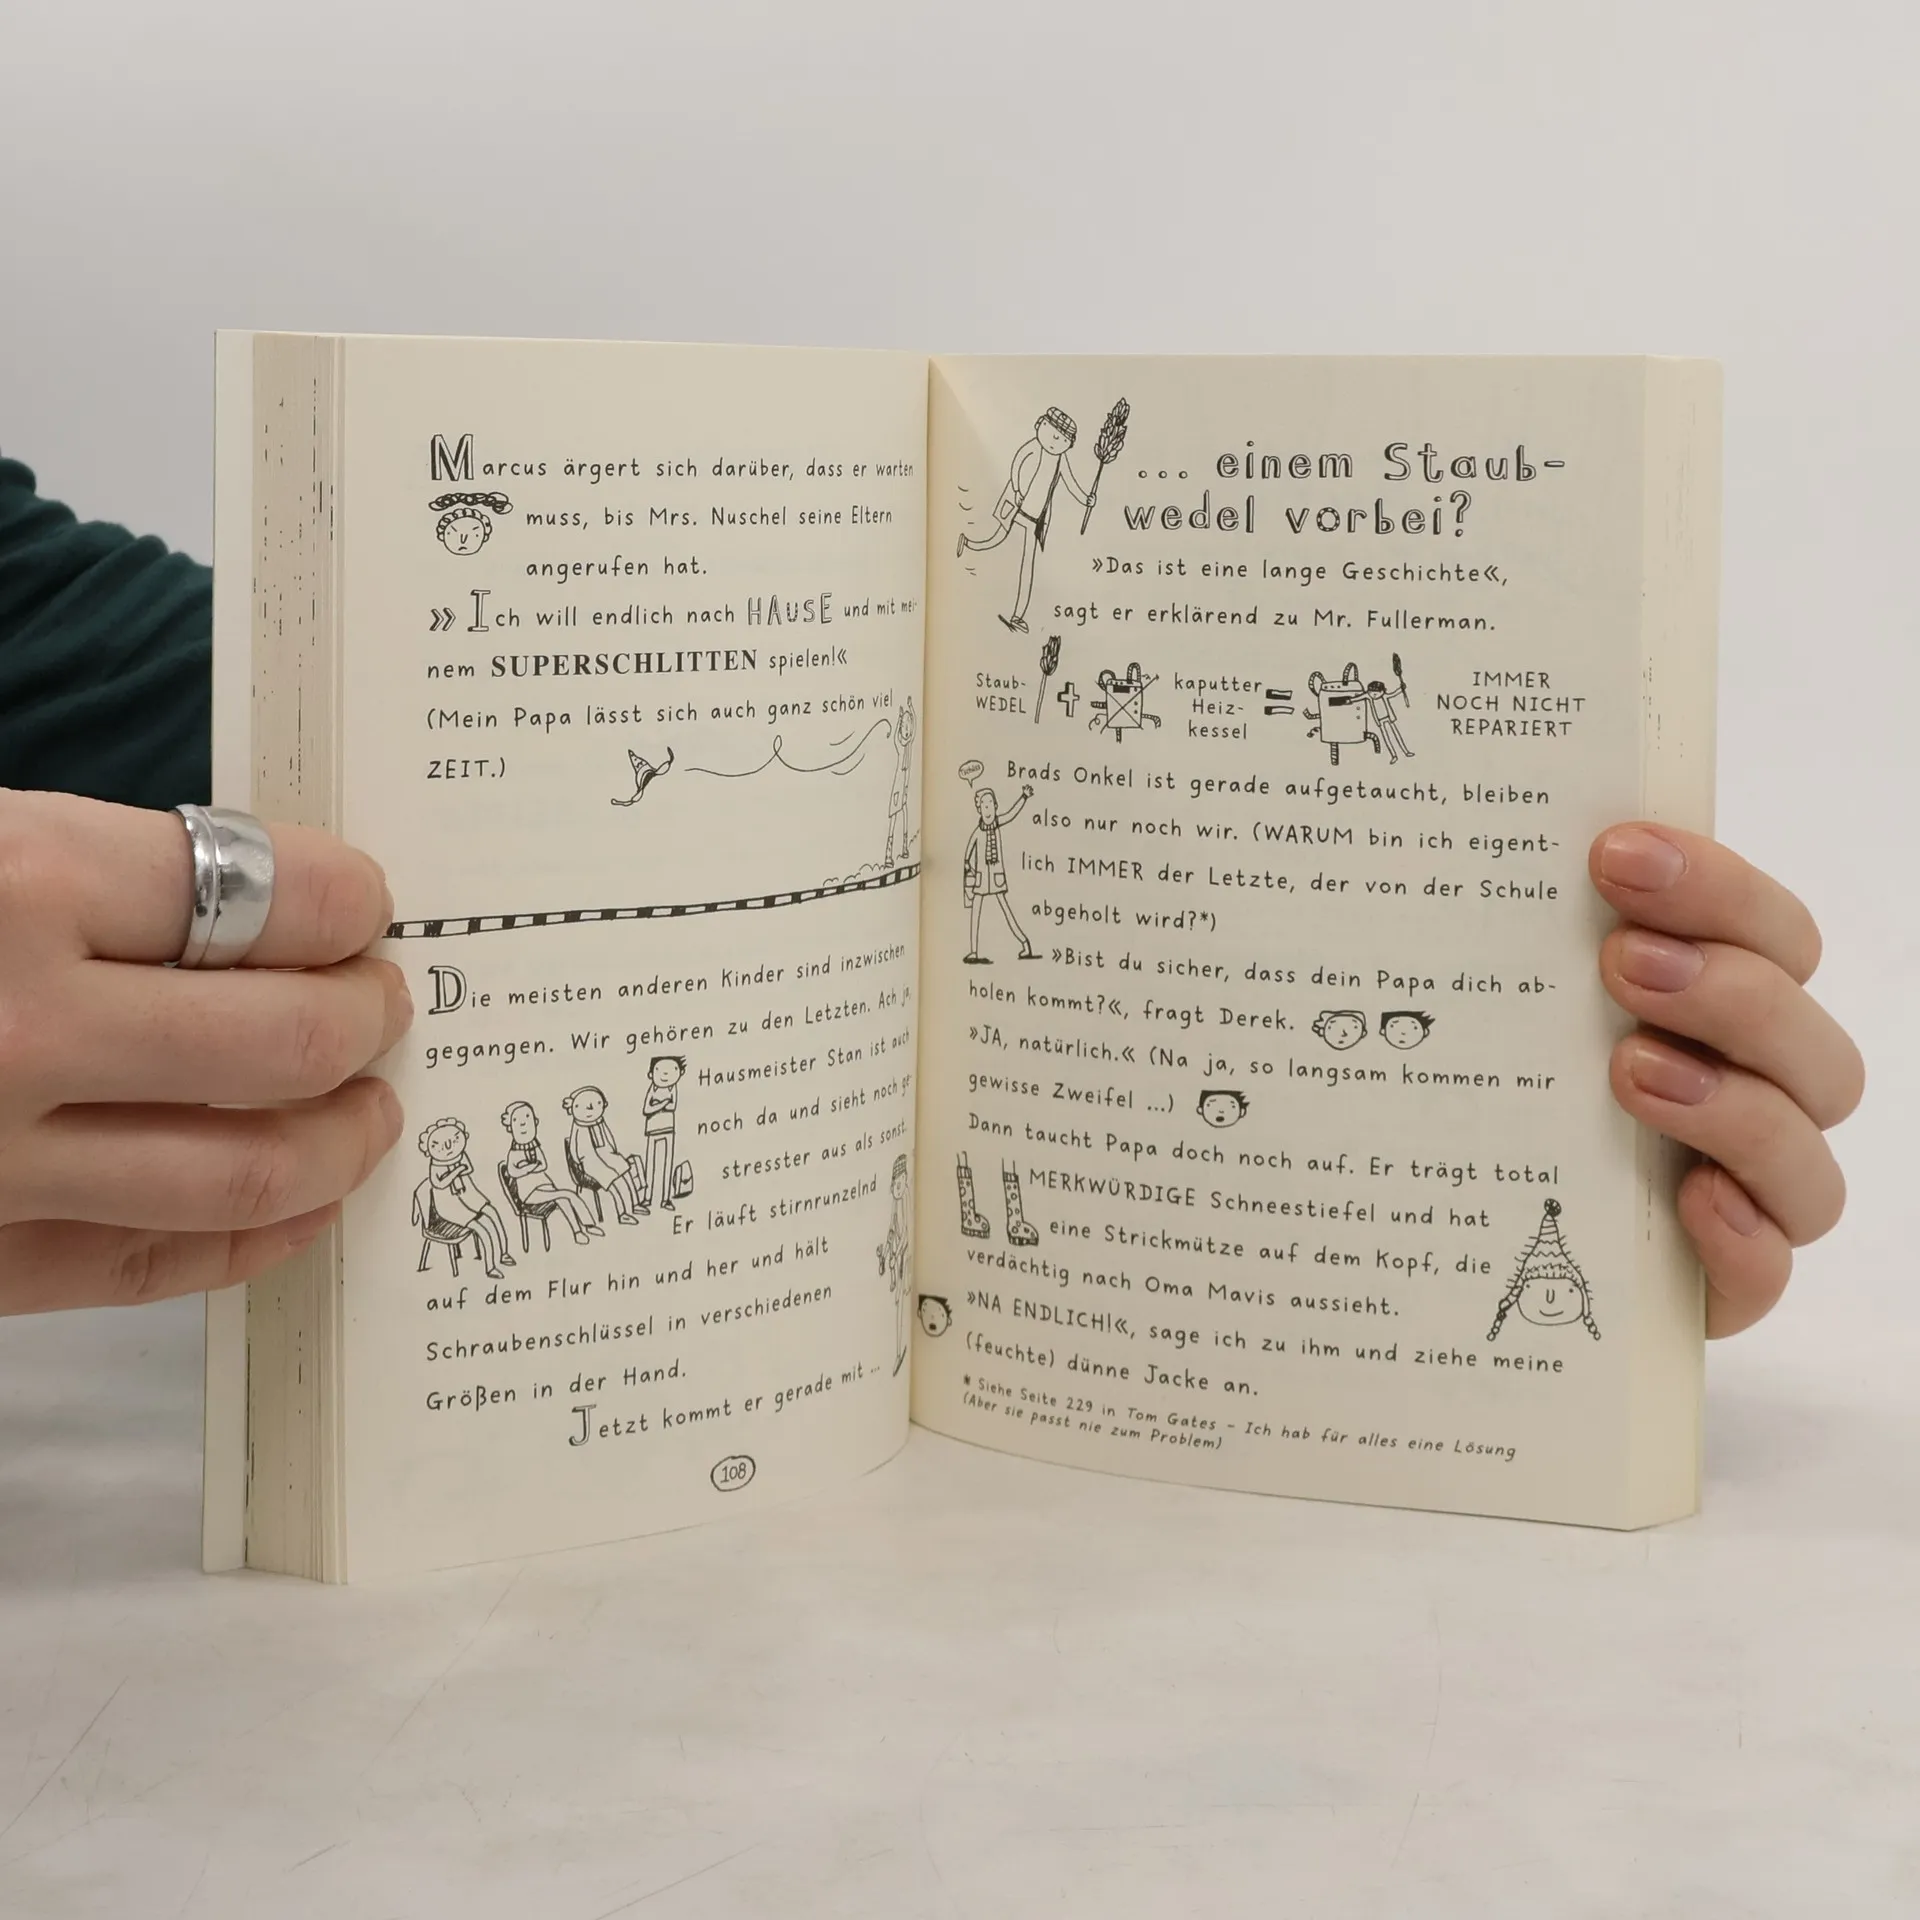 Marcus ärgert sich darüber, dass er warten
muss, bis Mrs. Nuschel seine Eltern
angerufen hat.
»Ich will endlich nach HAUSE und mit mei-
nem SUPERSCHLITTEN spielen!«
(Mein Papa lässt sich auch ganz schön viel
ZEIT.)
Die meisten anderen Kinder sind inzwischen
gegangen. Wir gehören zu den Letzten. Ach ja,
Hausmeister Stan ist auch
noch da und sieht noch ge-
stresster aus als sonst.
Er läuft stirnrunzelnd
auf dem Flur hin und her und hält
Schraubenschlüssel in verschiedenen
Größen in der Hand.
Jetzt kommt er gerade mit ...
108
... einem Staub-
wedel vorbei?
»Das ist eine lange Geschichte«,
sagt er erklärend zu Mr. Fullerman.
Staub-
WEDEL
+
kaputter
Heiz-
kessel
=
IMMER
NOCH NICHT
REPARIERT
Brads Onkel ist gerade aufgetaucht, bleiben
also nur noch wir. (WARUM bin ich eigent-
lich IMMER der Letzte, der von der Schule
abgeholt wird?*)
»Bist du sicher, dass dein Papa dich ab-
holen kommt?«, fragt Derek.
»JA, natürlich.« (Na ja, so langsam kommen mir
gewisse Zweifel ...)
Dann taucht Papa doch noch auf. Er trägt total
MERKWÜRDIGE Schneestiefel und hat
eine Strickmütze auf dem Kopf, die
verdächtig nach Oma Mavis aussieht.
»NA ENDLICH!«, sage ich zu ihm und ziehe meine
(feuchte) dünne Jacke an.
* Siehe Seite 229 in Tom Gates – Ich hab für alles eine Lösung
(Aber sie passt nie zum Problem)